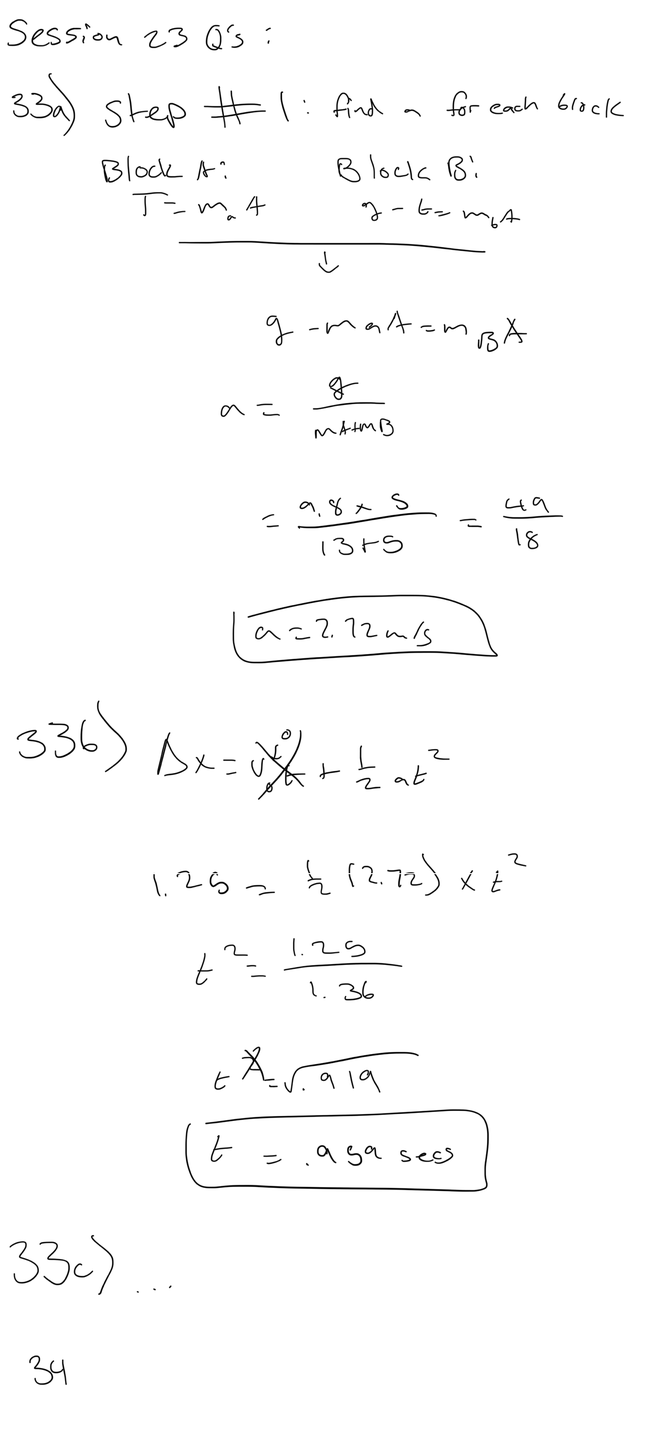 Session 23 Q's :
33a) Step #1: find a for each block
Block A: Block B:
T = mₐ A g - t = m_b A
↓
g - maA = m_B A
a = g / mA+mB
= 9.8 × 5 / 13+5 = 49 / 18
a = 2.72 m/s
33b) Δx = v₀t⁰ + 1/2 at²
1.25 = 1/2 (2.72) × t²
t² = 1.25 / 1.36
t² = √.919
t = .959 secs
33c) ...
34